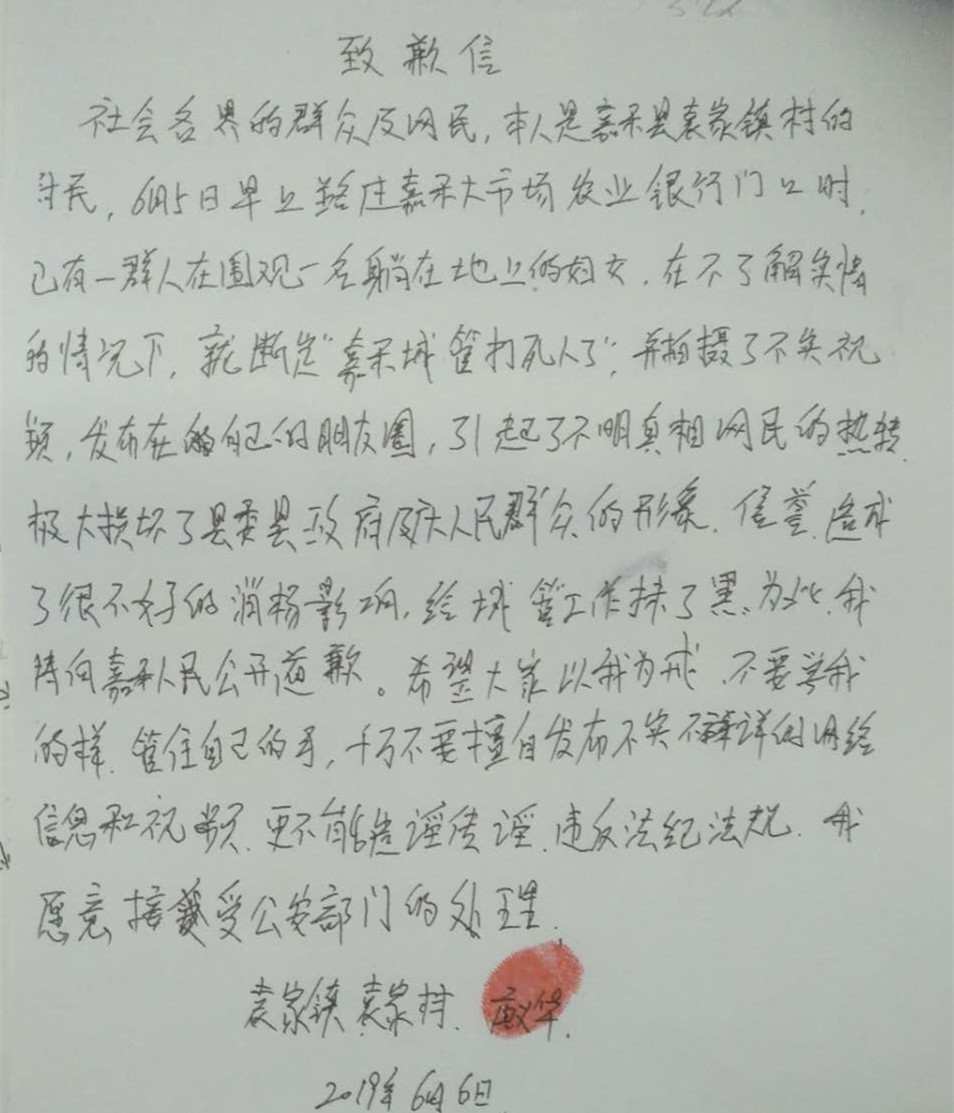 致歉信
社会各界的群众及网民,本人是嘉禾县袁家镇村的
村民,6月5日早上路过嘉禾大市场农业银行门口时,
已有一群人在围观一名躺在地上的妇女.在不了解实情
的情况下,就断定“嘉禾城管打死人了”,并拍摄了不实视
频,发布在的自己的朋友圈,引起了不明真相网民的热转.
极大损坏了县委县政府及广大人民群众的形象.信誉.造成
了很不好的消极影响,给城管工作抹了黑、为此.我
特向嘉禾人民公开道歉。希望大家以我为戒.不要学我
的样.管住自己的手,千万不要擅自发布不实不详的网络
信息和视频.更不能造谣传谣.违反法纪法规.我
愿意接受公安部门的处理.
袁家镇袁家村.
2019年6月6日